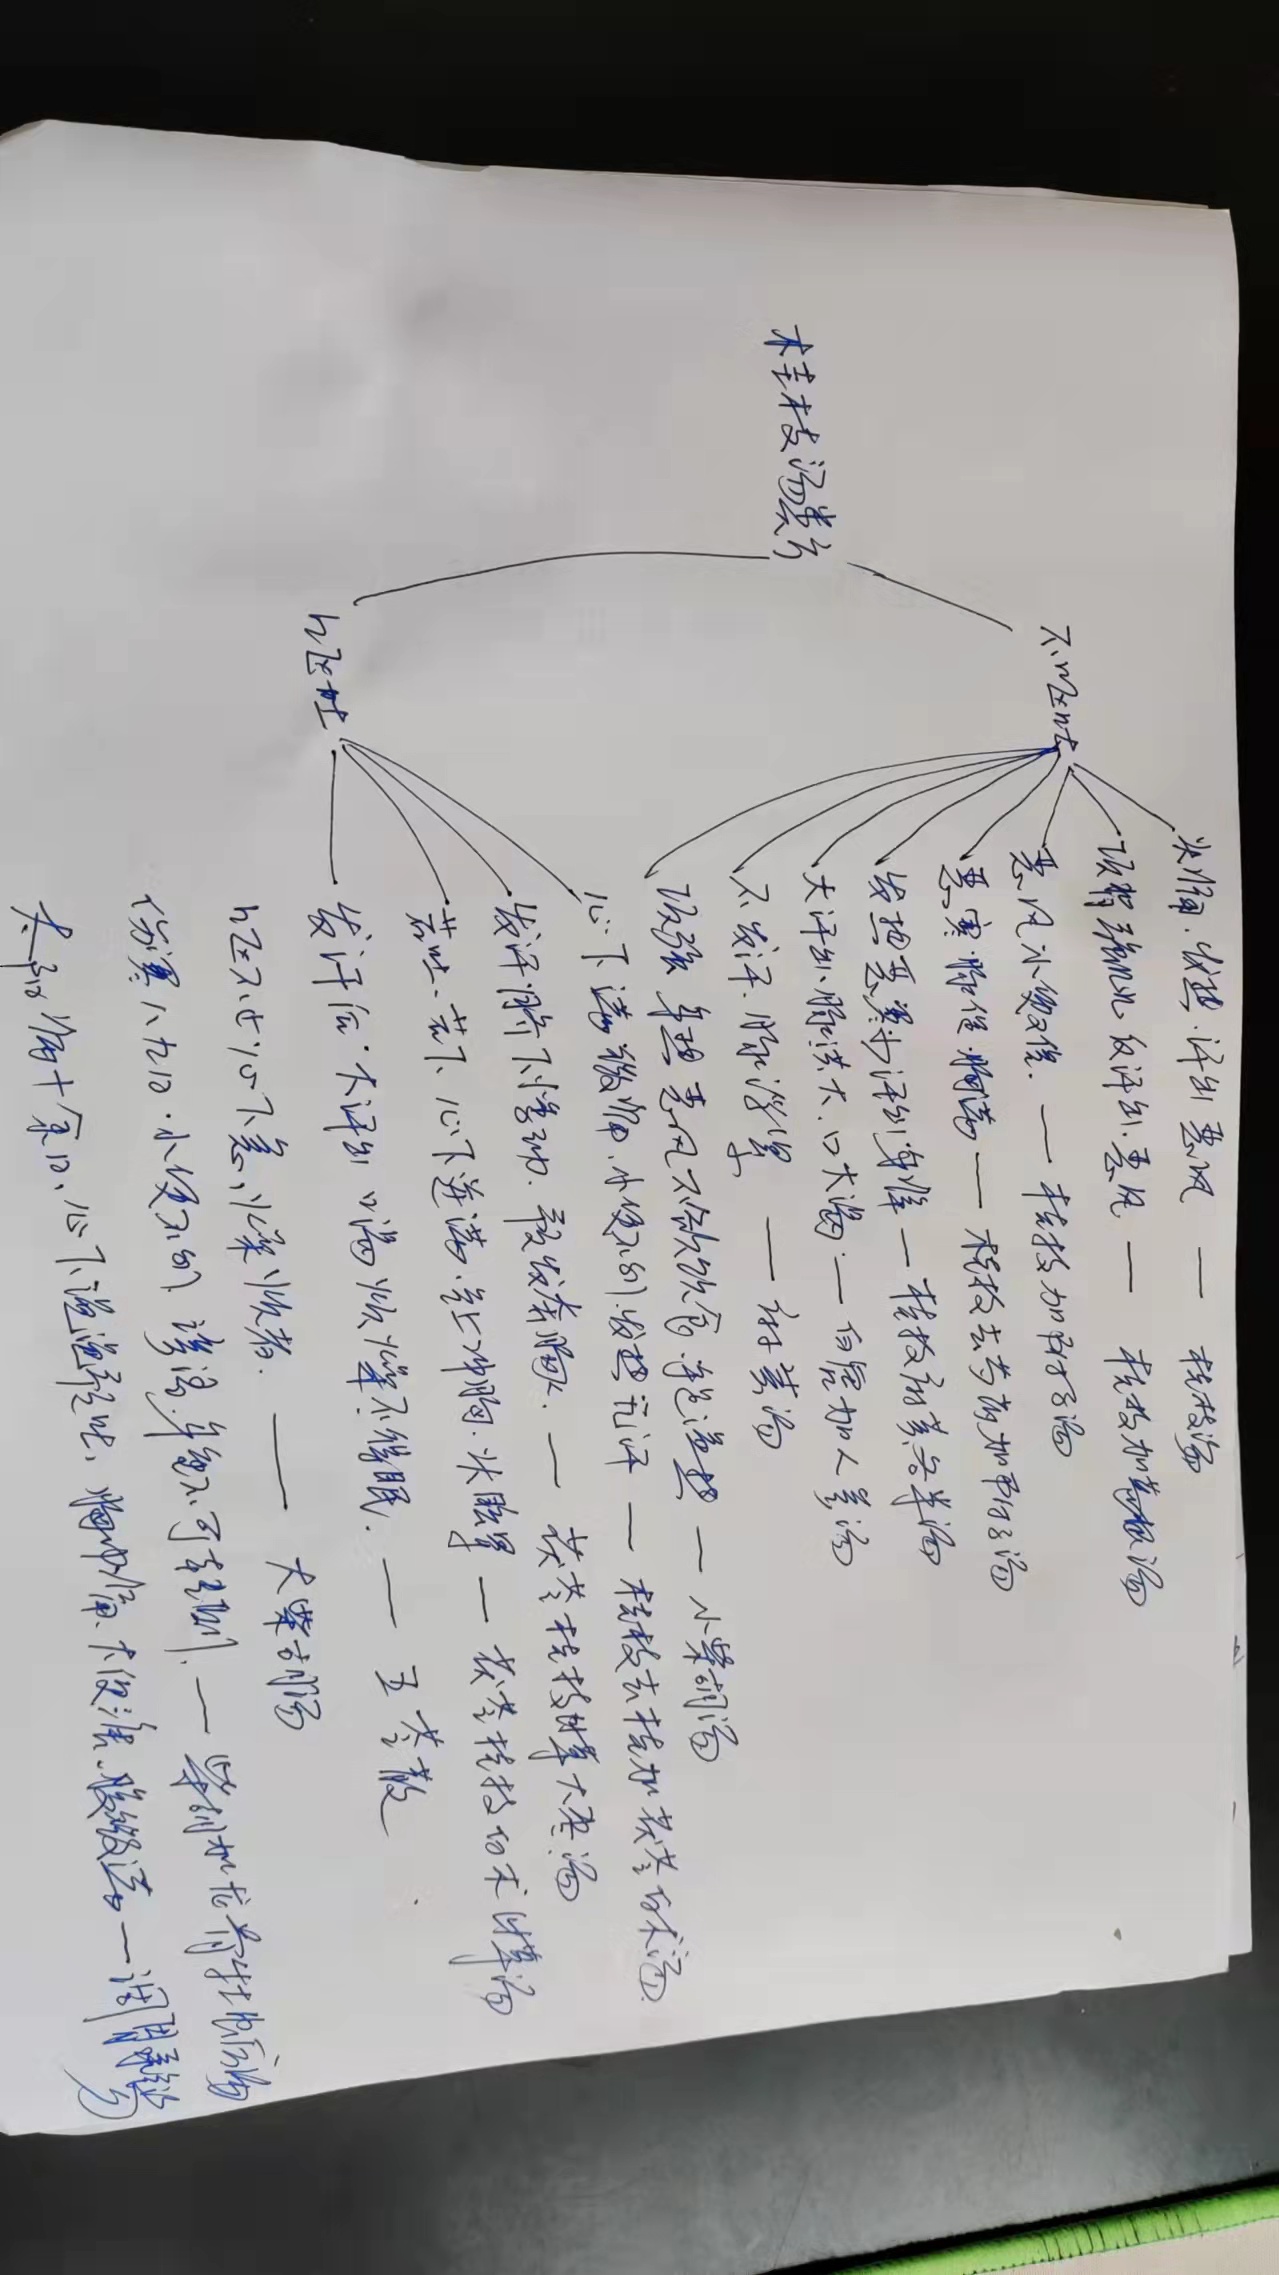 桂枝汤类方
不呕吐
头痛.发热.汗出恶风 — 桂枝汤
项背强几几 反汗出.恶风 — 桂枝加葛根汤
恶风小便难. — 桂枝加附子汤
恶寒.脉促.胸满 — 桂枝去芍药加附子汤
发热恶寒 — 桂枝麻黄各半汤
大汗出、脉洪大.口大渴. — 白虎加人参汤
不发汗.脉浮紧 — 麻黄汤
项强 身热 恶风不欲饮食 — 小柴胡汤
呕吐
心下满微痛.小便不利 发热无汗 — 桂枝去桂加茯苓白术汤
发汗.脐下悸动.欲发奔豚. — 茯苓桂枝甘草大枣汤
若吐、若下、心下逆满.气上冲胸.头眩 — 茯苓桂枝白术甘草汤
发汗后.大汗出 口渴 烦燥不得眠. — 五苓散
呕不止 心下急,烦者. — 大柴胡汤
伤寒八九日.小便不利 谵语.身重不可转侧. — 柴胡加龙骨牡蛎汤
太阳病十余日、心下温温欲吐、胸中痛.大便溏.腹微满 — 调胃承气汤